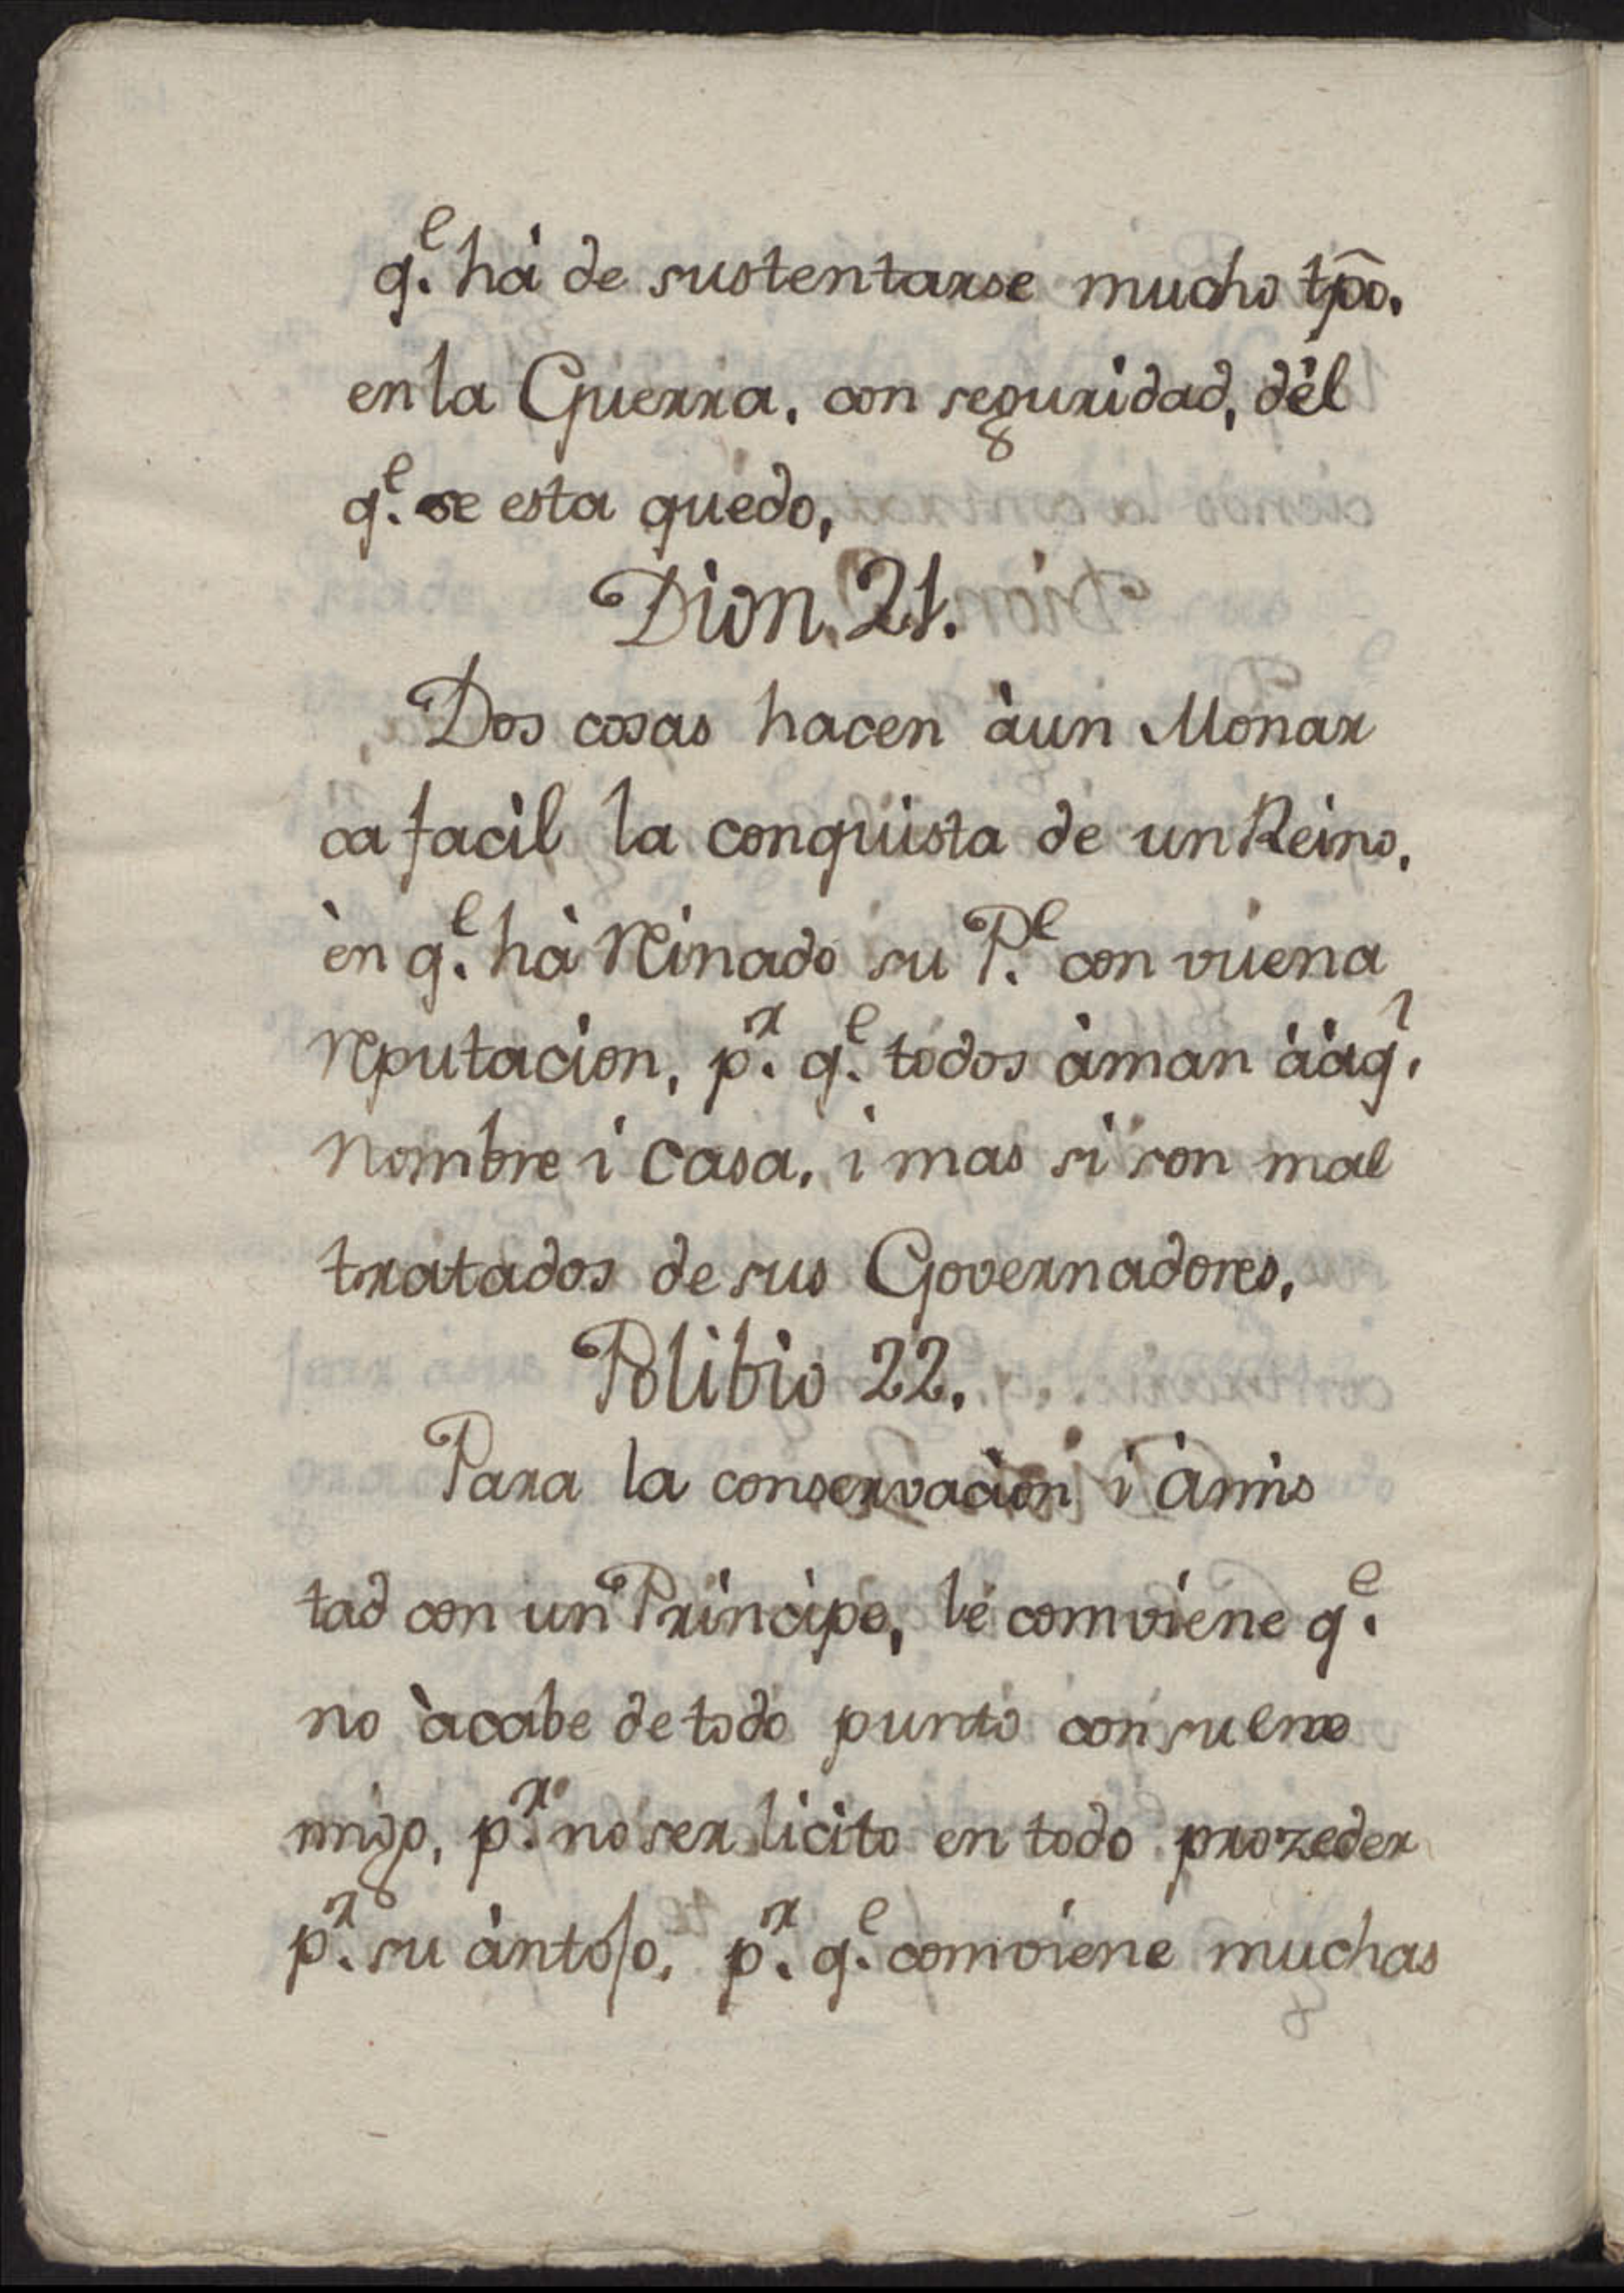 q.e hà de sustentarse mucho tp̃o.
en la Guerra, con seguridad, dèl
q.e se esta quedo,
Dion. 21.
Dos cosas hacen àun Monar
ca facil la conquista de un Reino,
èn q.e hà reinado su P.e con vuena
reputacion, p.r q.e todos àman ààq.l
nombre i casa, i mas si son mal
tratados de sus Governadores,
Polibio 22.
Para la conservacion i àmis
tad con un Principe, le comviene q.e
no àcabe de todo punto con su ene
migo, p.r no ser licito en todo prozeder
p.r su àntojo, p.r q.e comviene muchas